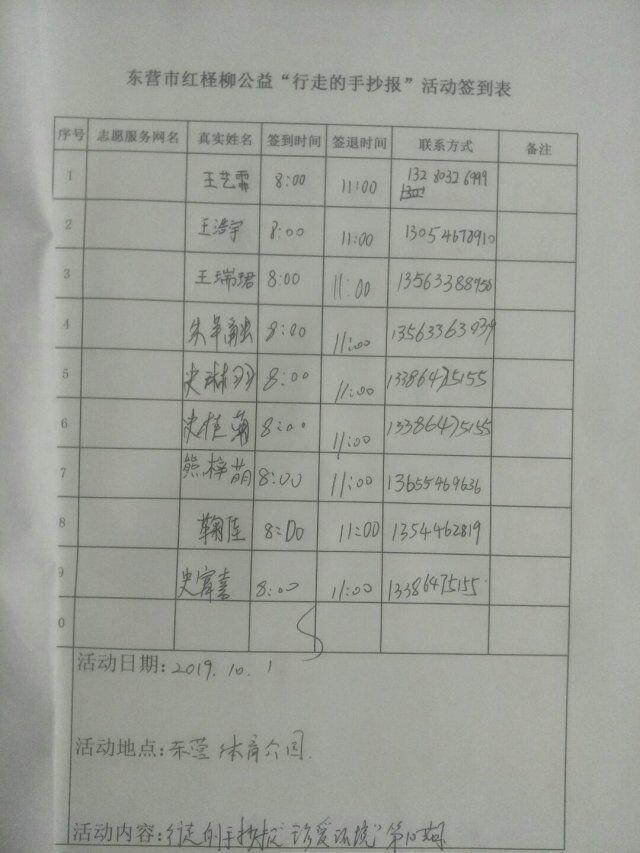 东营市红柽柳公益“行走的手抄报”活动签到表
序号 志愿服务网名 真实姓名 签到时间 签退时间 联系方式 备注
1 王艺霏 8:00 11:00 132 8032 6999
2 王浩宇 8:00 11:00 13054678910
3 王瑞珺 8:00 11:00 13563388958
4 8:00 11:00 13563363939
5 史琳羽 8:00 11:00 13386475155
6 史桂菊 8:00 11:00 13386475155
7 熊梓萌 8:00 11:00 13655469636
8 鞠佳 8:00 11:00 1354462819
9 8:00 11:00 13386475155
0
活动日期: 2019.10.1
活动地点: 东营体育公园.
活动内容: 行走的手抄报“珍爱环境”第10期